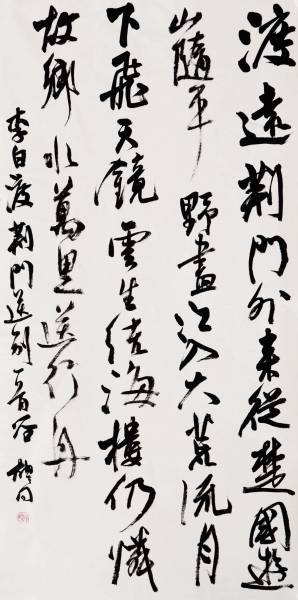 渡遠荆門外来從楚國遊
山隨平野盡江入大荒流月
下飛天鏡雲生結海樓仍憐
故鄉水萬里送行舟
李白渡荆門送别一首